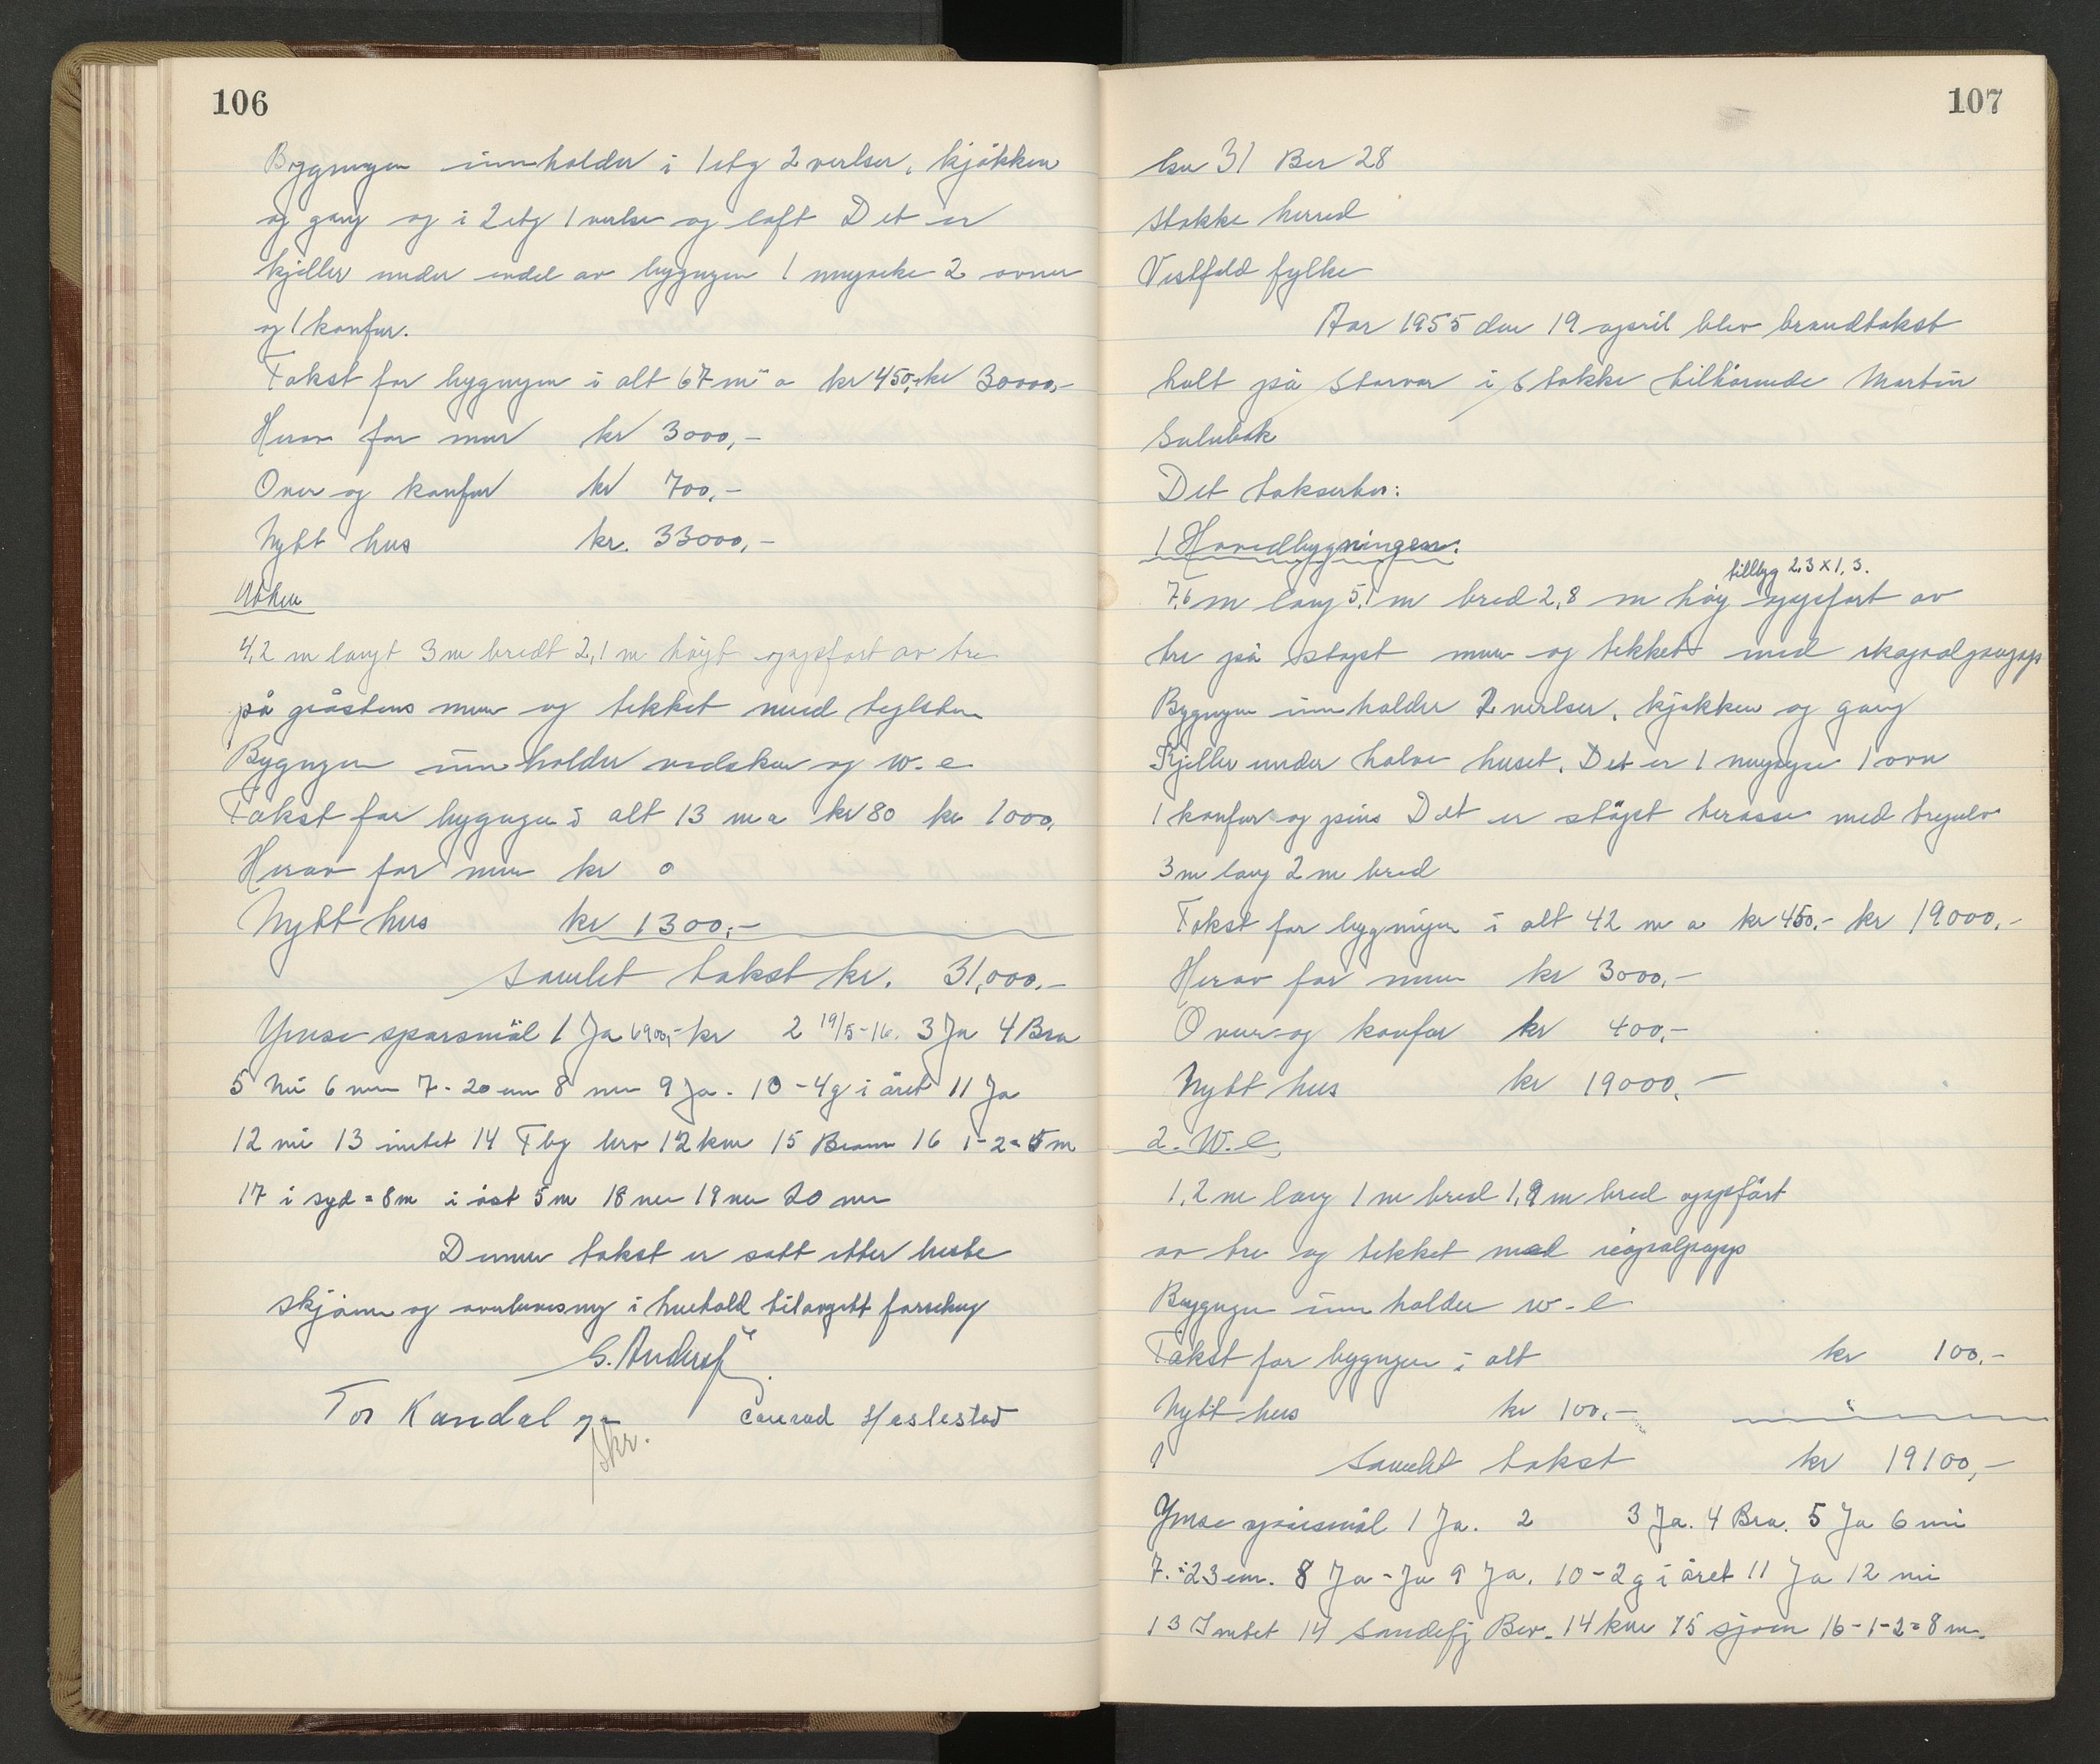 106
Bygningen innholder i 1 etg 2 verlser, kjøkken
og gang og i 2 etg 1 verlse og loft Det er
kjeller under endel av bygngen 1 2 ovner
og 1 komfur.
Takst for bygngen i alt 67 m² a kr 450,- kr 30000,-
Herav for mur kr 3000,-
Over og komfur kr 700,-
Nytt hus kr. 33000,-
Uthus
4,2 m langt 3 m bredt 2,1 m høyt oppført av tre
på gråstens mur og tekket med teglsten
Bygngen innholder vedskur og w.c
Takst for bygngen i alt 13 m a kr 80 kr 1000,
Herav for mur kr 0
Nytt hus kr 1300,-
Samlet takst kr. 31,000.-
Ymse spørsmål 1 Ja 6900,- kr 2 19/5-16. 3 Ja 4 Bra
5 Nei 6 nei 7 - 20 cm 8 nei 9 Ja - 10 - 4 g i året 11 Ja
12 nei 13 intet 14 Tbg brv 12 km 15 Brønn 16 1-2 = 5 m
17 i syd = 8 m i øst 5 m 18 nei 19 nei 20 nei
Denne takst er satt etter beste
skjønn og overbevisning i henhold til avgitt forsikring
Tor Kandal
skr.
Conrad Haslestad
107
Lnr 31 Bnr 28
Stokke herred
Vestfold fylke
Aar 1955 den 19 april blev brandtakst
holt på Storvar i Stokke tilhørende Martin
Solubak
Det taksertes:
1 Hovedbygningen:
tillbyg 2,3 x 1,3.
7,6 m lang 5,1 m bred 2,8 m høy oppført av
tre på støpt mur og tekket med skapalpapp
Bygngen innholder 2 verlser, kjøkken og gang
Kjeller under halve huset. Det er 1 1 ovn
1 komfur og peis Det er støpt terasse med tregulv
3 m lang 2 m bred
Takst for bygningen i alt 42 m a kr 450,- kr 19000,-
Herav for mur kr 3000,-
Ovner og komfur kr 400,-
Nytt hus kr 19000,-
2. W.C.
1,2 m lang 1 m bred 1,9 m bred oppført
av tre og tekket med
Bygngen innholder w-c
Takst for bygngen i alt kr 100,-
Nytt hus kr 100,-
Samlet takst kr 19100,-
Ymse spørsmål 1 Ja. 2 3 Ja. 4 Bra. 5 Ja 6 nei
7. 23 cm. 8 Ja - Ja 9 Ja. 10 - 2 g i året 11 Ja 12 nei
13 Intet 14 Sandefj Brv. 14 km 15 sjøen 16 - 1-2 = 8 m.